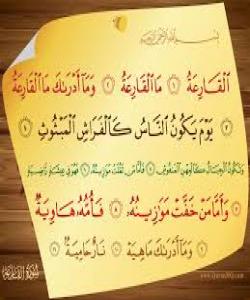 بِسْمِ اللَّهِ الرَّحْمَٰنِ الرَّحِيمِ
الْقَارِعَةُ ١ مَا الْقَارِعَةُ ٢ وَمَا أَدْرَىٰكَ مَا الْقَارِعَةُ
٣ يَوْمَ يَكُونُ النَّاسُ كَالْفَرَاشِ الْمَبْثُوثِ ٤
وَتَكُونُ الْجِبَالُ كَالْعِهْنِ الْمَنفُوشِ ٥ فَأَمَّا مَن ثَقُلَتْ مَوَٰزِينُهُ ٦ فَهُوَ فِي عِيشَةٍ رَّاضِيَةٍ
٧ وَأَمَّا مَنْ خَفَّتْ مَوَٰزِينُهُ ٨ فَأُمُّهُ هَاوِيَةٌ
٩ وَمَا أَدْرَىٰكَ مَا هِيَهْ ١٠ نَارٌ حَامِيَةٌ ١١
سُورَةُ الْقَارِعَةِ